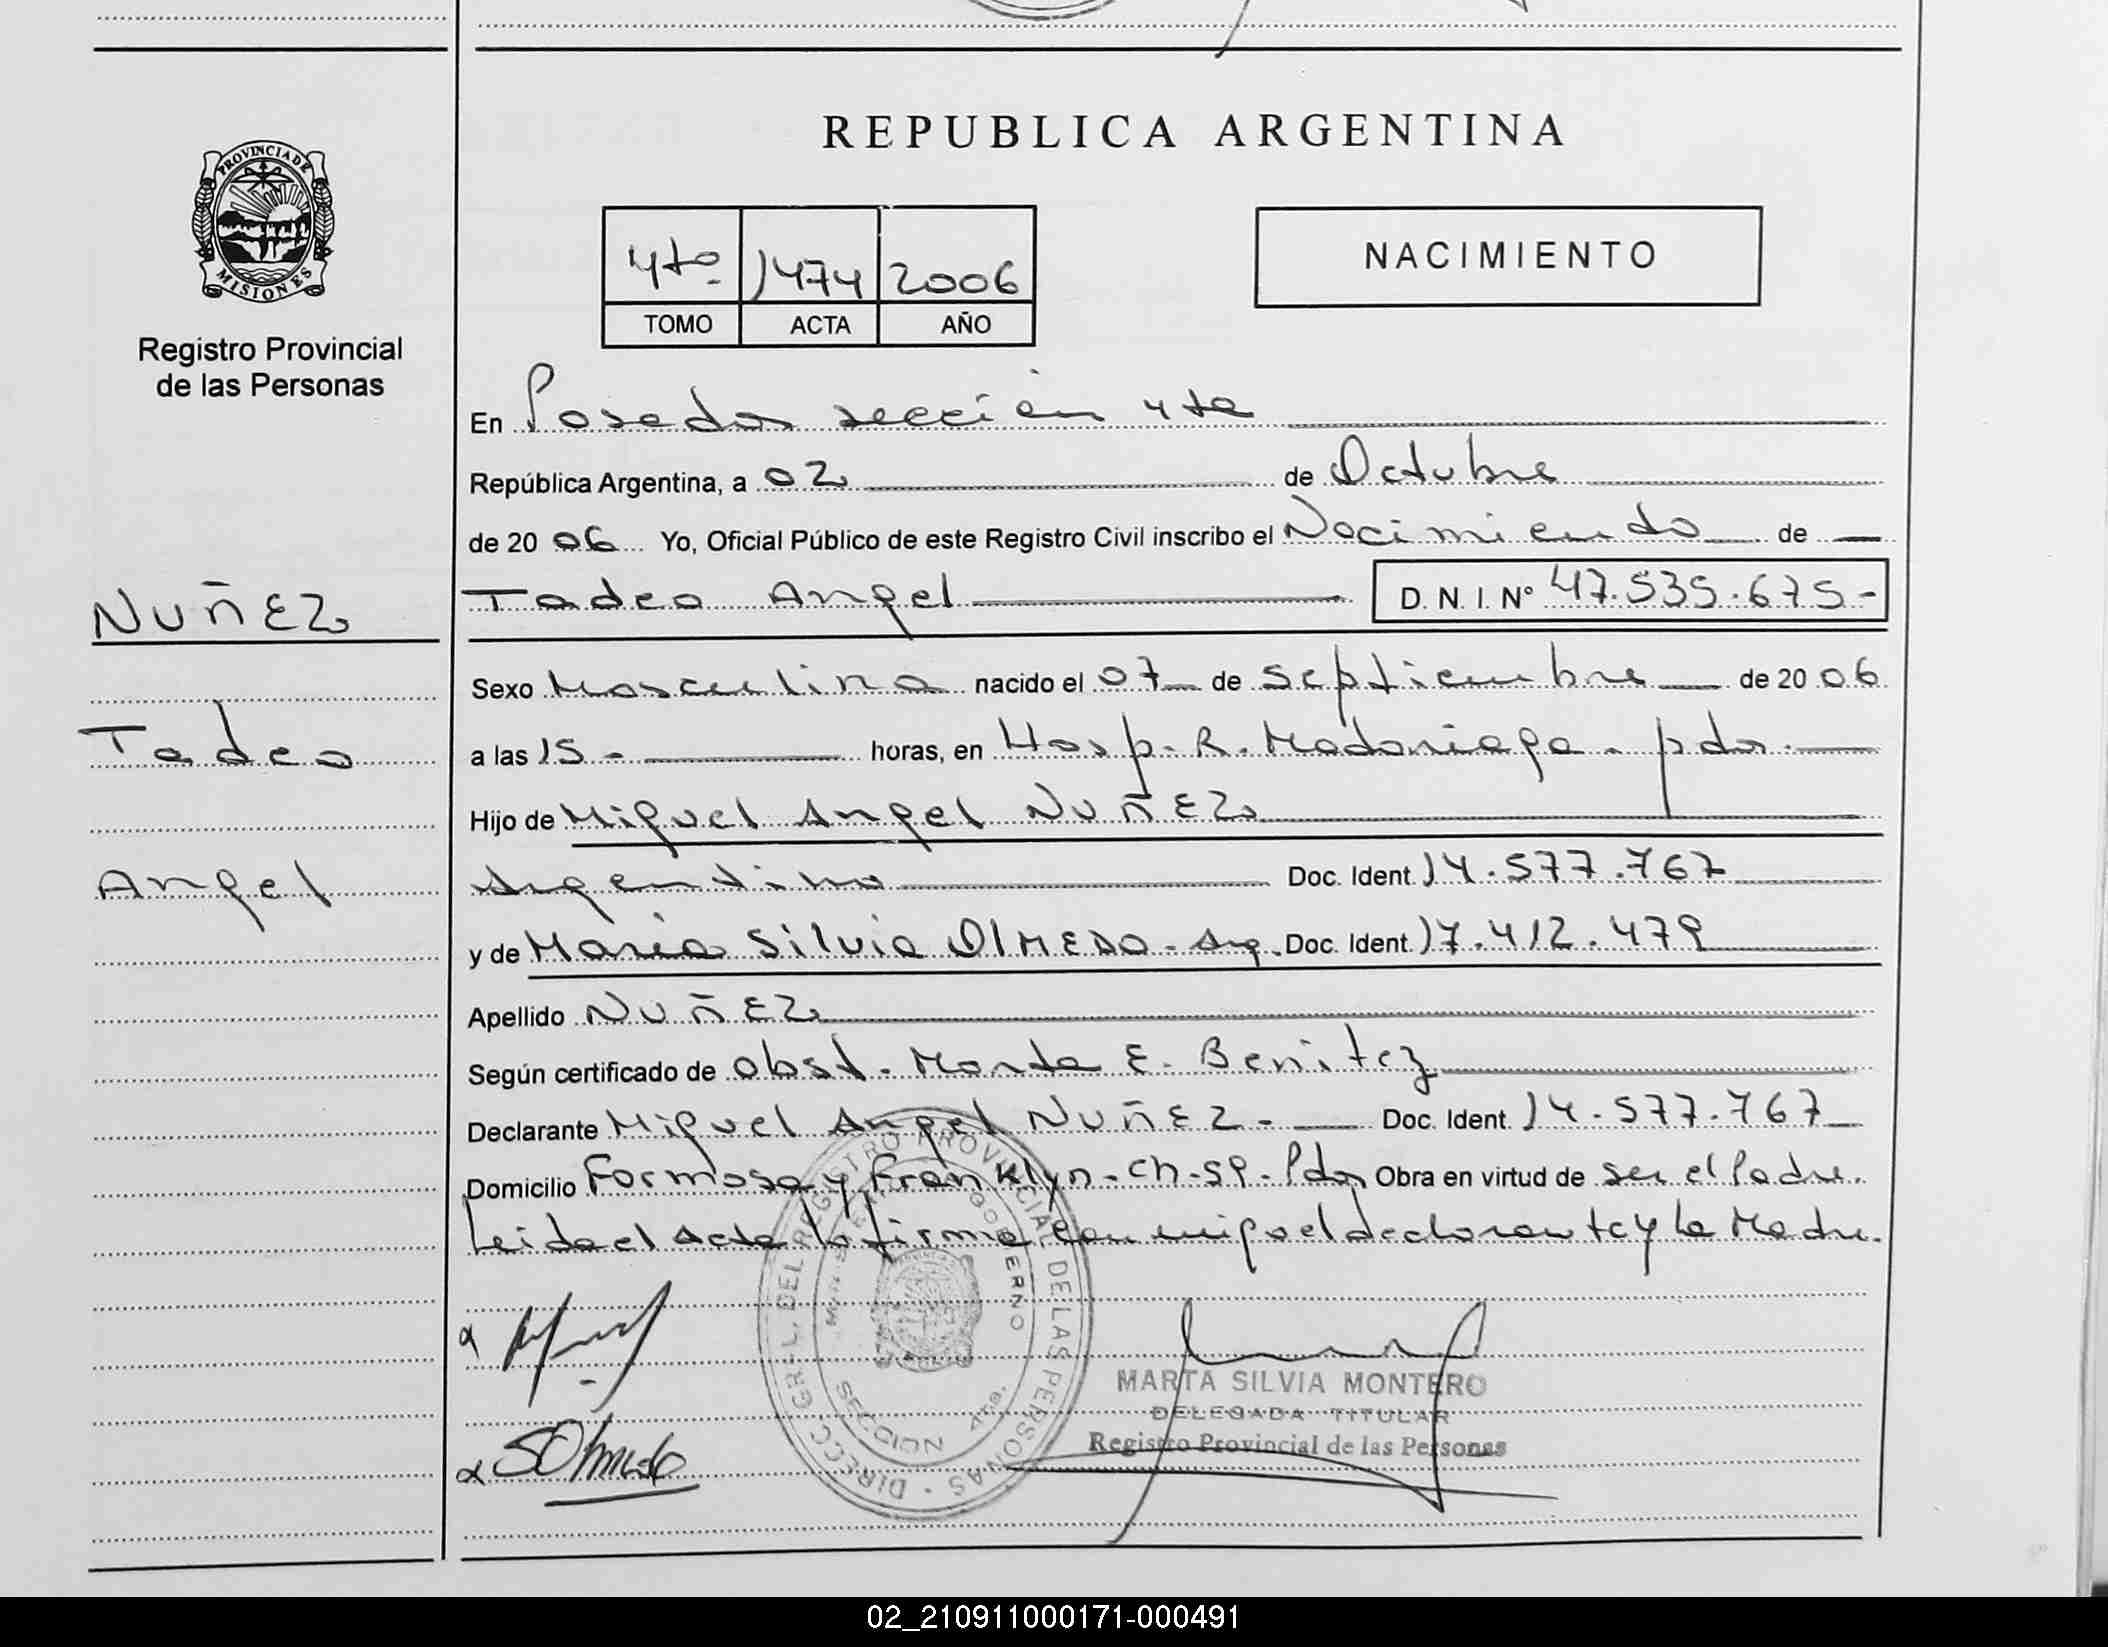 PROVINCIA DE
MISIONES
Registro Provincial
de las Personas
NUÑEZ
Tadeo
Angel
REPUBLICA ARGENTINA
4to 1474 2006
TOMO ACTA AÑO
NACIMIENTO
En Posadas sección 4ta
República Argentina, a 02 de Octubre
de 20 06 Yo, Oficial Público de este Registro Civil inscribo el Nacimiento de
Tadeo Angel D. N. I. N° 47.535.675-
Sexo Masculino nacido el 07 de septiembre de 20 06
a las 15 - horas, en Hosp. R. Madariaga. pdas.
Hijo de Miguel Angel NUÑEZ
Argentino Doc. Ident. 14.577.767
y de Maria Silvia OlMEDO - Arg. Doc. Ident. 17.412.479
Apellido NUÑEZ
Según certificado de obst. Marta E. Benitez
Declarante Miguel Angel NUÑEZ - Doc. Ident. 14.577.767
Domicilio Formosa y Franklyn - ch - Pdas Obra en virtud de ser el Padre.
Leida el Acta la firma conmigo el declarante y la Madre.
DIRECC. GRAL. DEL REGISTRO PROVINCIAL DE LAS PERSONAS
GOBIERNO
SECCION 4ta.
SOlmedo
MARTA SILVIA MONTERO
DELEGADA TITULAR
Registro Provincial de las Personas
02_210911000171-000491